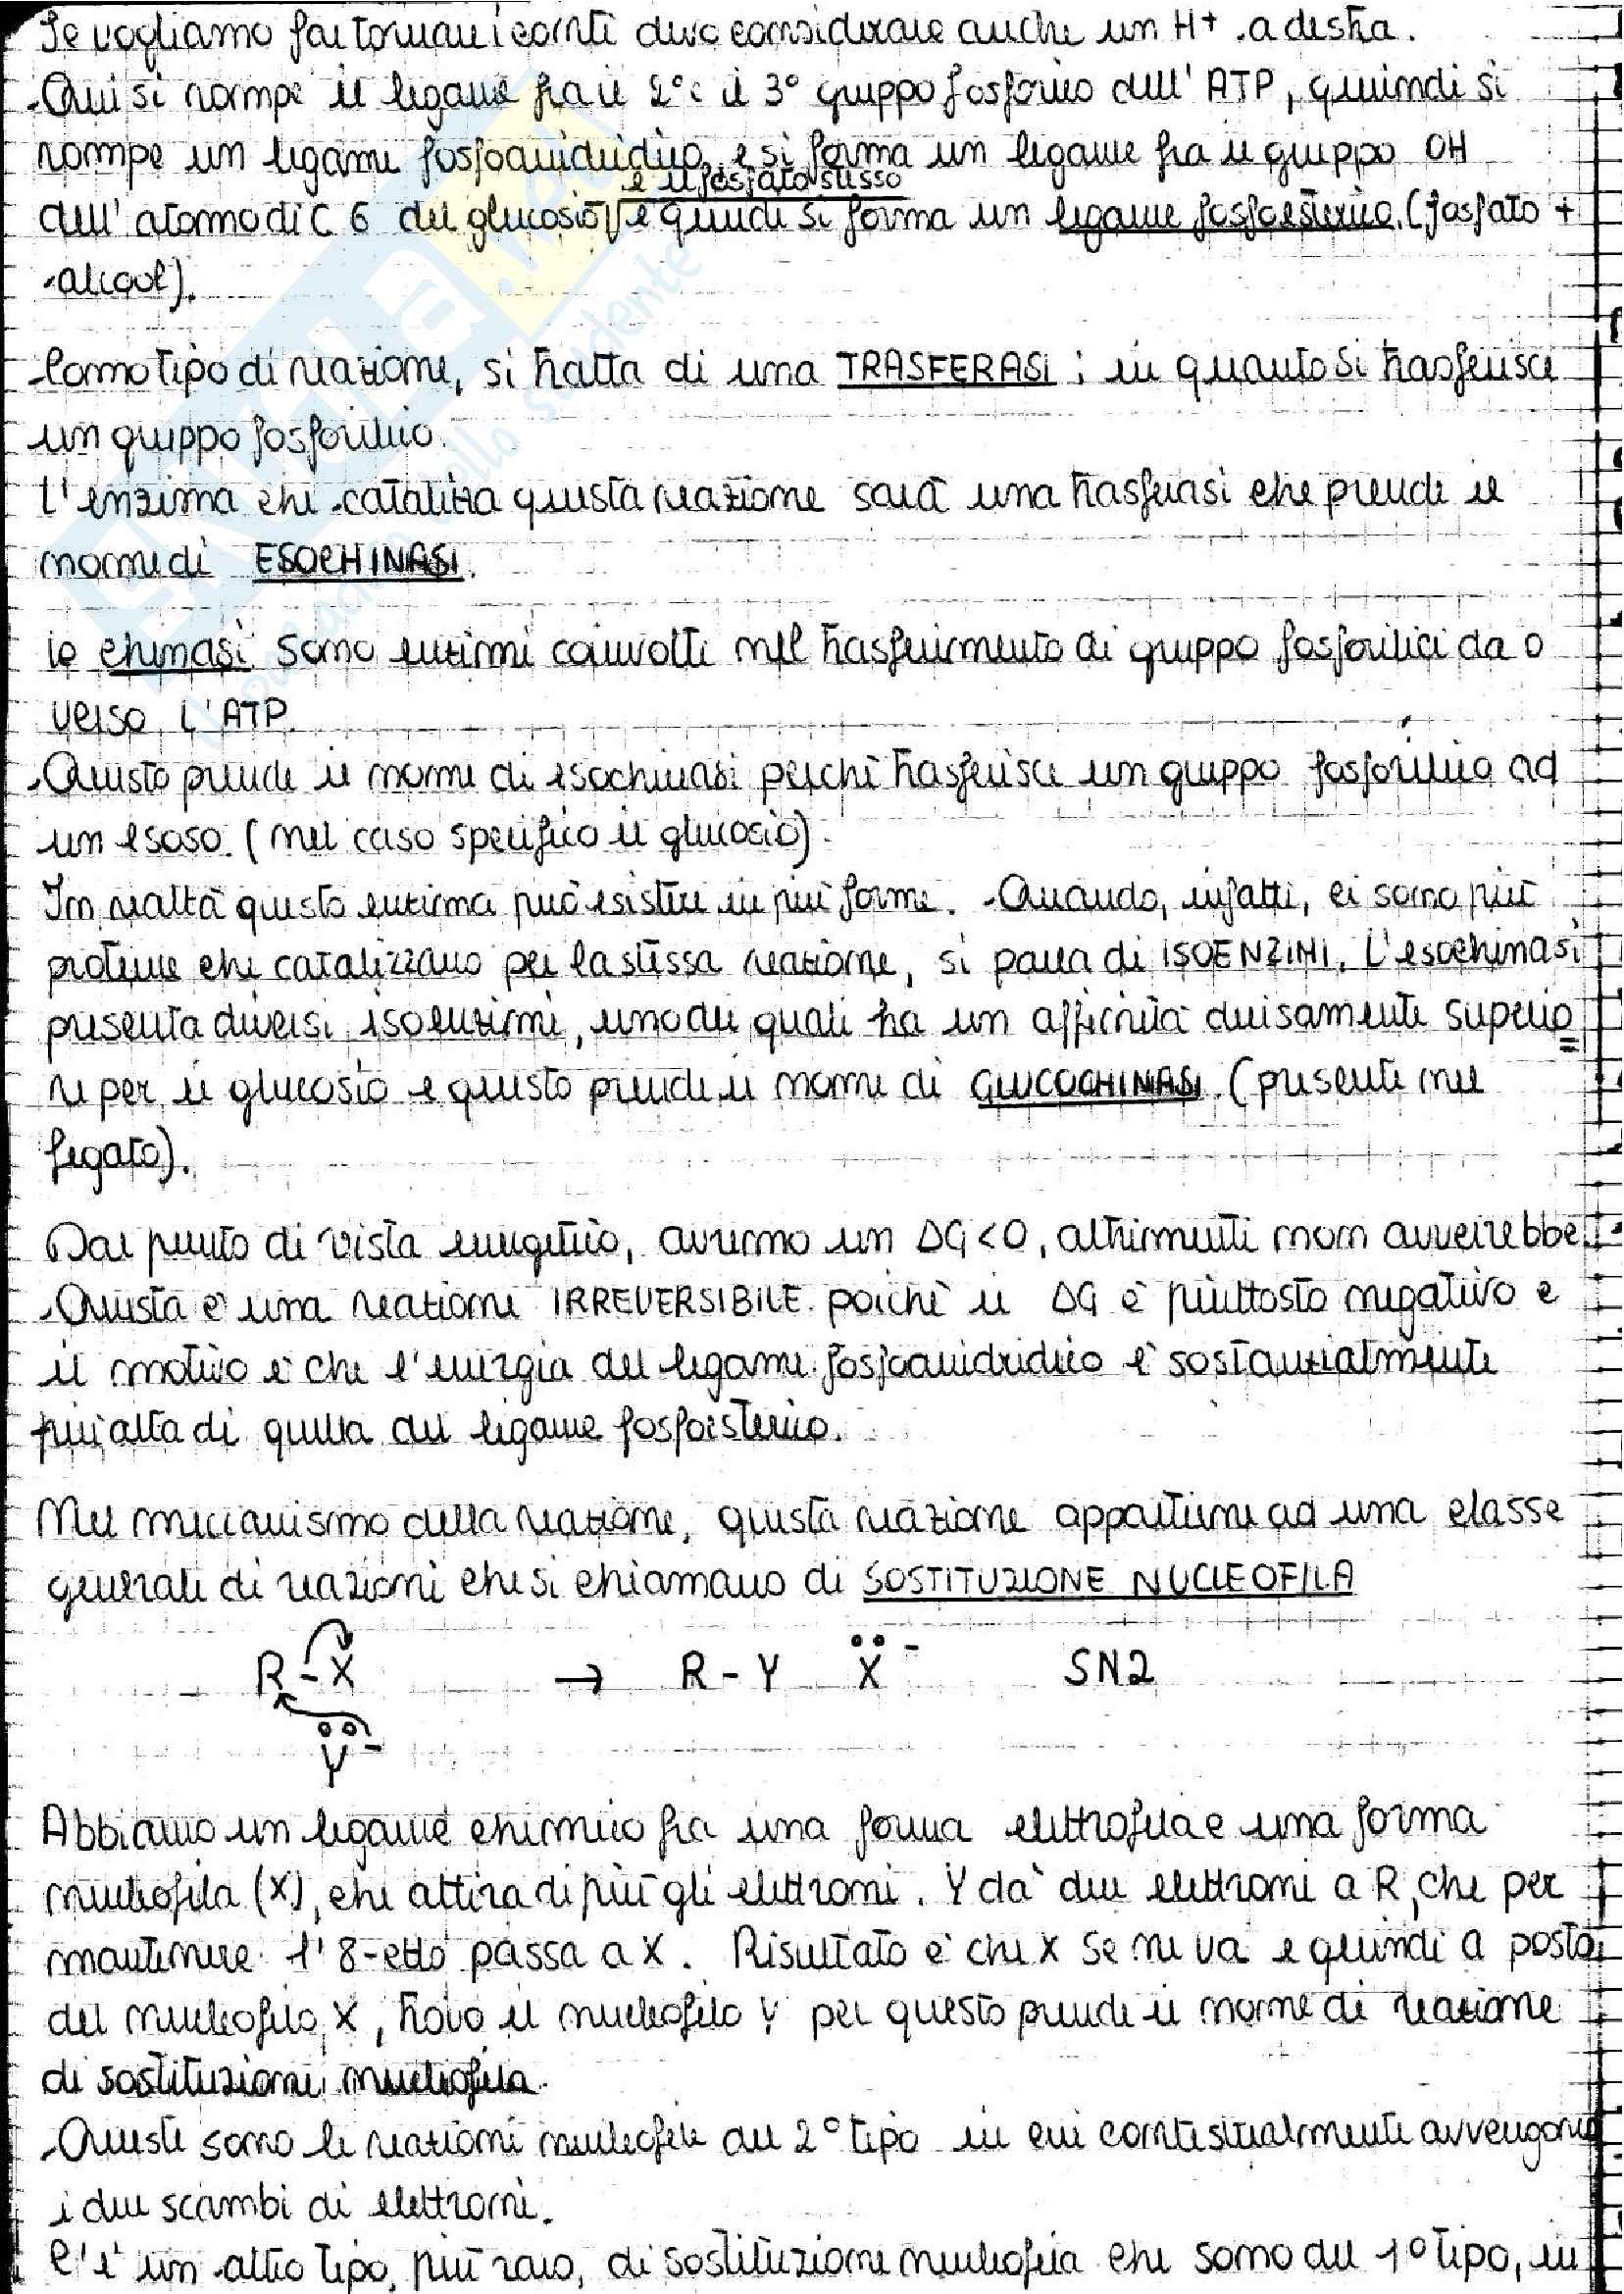 Se vogliamo far tornare i conti devo considerare anche un H+ a destra.
Qui si rompe il legame fra il 2° e il 3° gruppo fosforico dell'ATP, quindi si
rompe un legame fosfoanidridico e si forma un legame fra il gruppo OH
e il fosfato stesso
dell'atomo di C 6 del glucosio e quindi si forma un legame fosfoesterico (fosfato +
alcol).
Come tipo di reazione, si tratta di una TRASFERASI; in quanto si trasferisce
un gruppo fosforilico.
L'enzima che catalizza questa reazione sarà una trasferasi che prende il
nome di ESOCHINASI.
Le chinasi sono enzimi coinvolti nel trasferimento di gruppo fosforilici da o
verso l'ATP.
Questo prende il nome di esochinasi perché trasferisce un gruppo fosforilico ad
un esoso (nel caso specifico il glucosio).
In realtà questo enzima può esistere in più forme. Quando, infatti, ci sono più
proteine che catalizzano per la stessa reazione, si parla di ISOENZIMI. L'esochinasi
presenta diversi isoenzimi, uno dei quali ha un affinità decisamente superio=
re per il glucosio e questo prende il nome di GLUCOCHINASI (presente nel
fegato).
Dal punto di vista energetico, avremo un ΔG<0, altrimenti non avverrebbe.
Questa è una reazione IRREVERSIBILE poiché il ΔG è piuttosto negativo e
il motivo è che l'energia del legame fosfoanidridico è sostanzialmente
più alta di quella del legame fosfoesterico.
Nel meccanismo della reazione, questa reazione appartiene ad una classe
generale di reazioni che si chiamano di SOSTITUZIONE NUCLEOFILA
R-X → R-Y X⁻ SN2
Y⁻
Abbiamo un legame chimico fra una forma elettrofila e una forma
nucleofila (X), che attira di più gli elettroni. Y dà due elettroni a R, che per
mantenere l'8-etto passa a X. Risultato è che X se ne va e quindi a posto
del nucleofilo X, trovo il nucleofilo Y per questo prende il nome di reazione
di sostituzione nucleofila.
Queste sono le reazioni nucleofile del 2° tipo in cui contestualmente avvengono
i due scambi di elettroni.
C'è un altro tipo, più raro, di sostituzione nucleofila che sono del 1° tipo, in